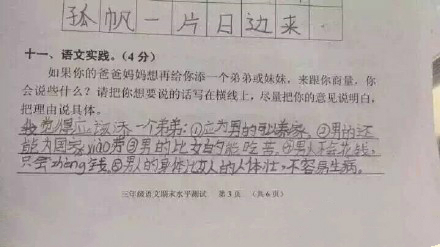 孤帆一片日边来.
十一、语文实践。(4分)
如果你的爸爸妈妈想再给你添一个弟弟或妹妹，来跟你商量，你
会说些什么？请把你想要说的话写在横线上，尽量把你的意见说明白，
把理由说具体。
我觉得应该添一个弟弟：①应为男的可以养家②男的还
能为国家xiào劳③男的比女的能吃苦。④男人不会花钱，
只会zhèng钱。⑤男人的身体比女人的人体壮，不容易生病。
三年级语文期末水平测试 第5页 (共6页)